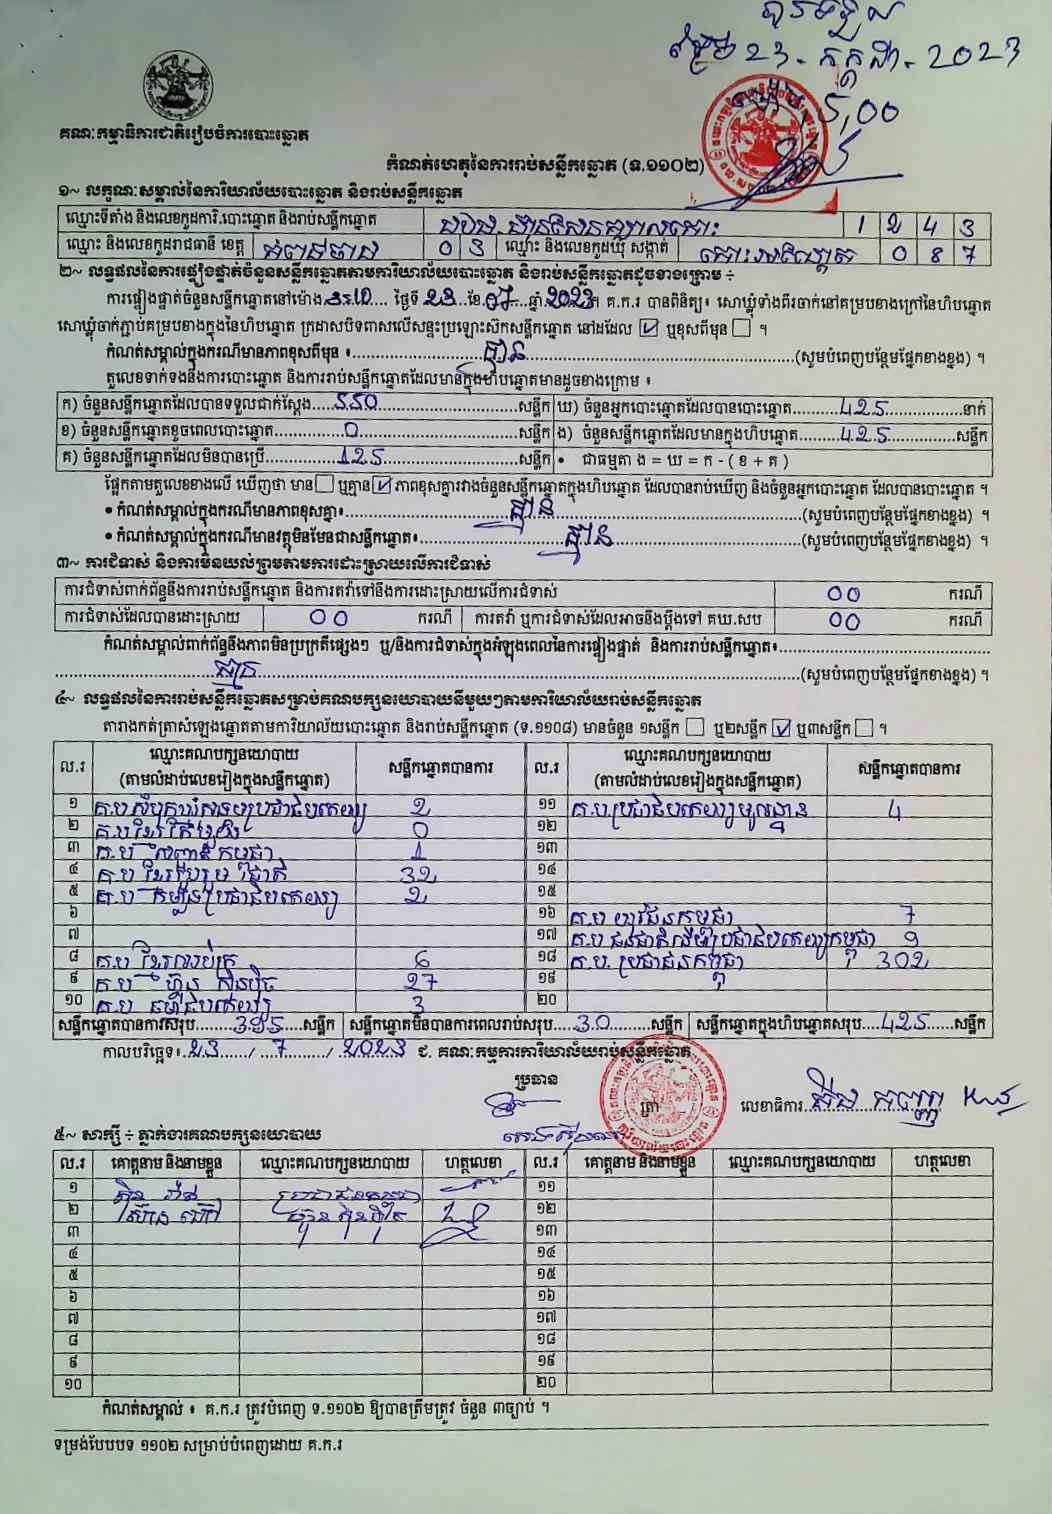 បានទទួល
ថ្ងៃទី 23 - កក្កដា - 2023
ម៉ោង 5,00
គណៈកម្មាធិការជាតិរៀបចំការបោះឆ្នោត
កំណត់ហេតុនៃការរាប់សន្លឹកឆ្នោត (ទ.១១០២)
១~ លក្ខណៈសម្គាល់នៃការិយាល័យបោះឆ្នោត និងរាប់សន្លឹកឆ្នោត
ឈ្មោះទីតាំង និងលេខកូដការិ.បោះឆ្នោត និងរាប់សន្លឹកឆ្នោត 1 2 4 3
ឈ្មោះ និងលេខកូដរាជធានី ខេត្ត កំពង់ចាម 0 3 ឈ្មោះ និងលេខកូដឃុំ សង្កាត់ 0 8 7
២~ លទ្ធផលនៃការផ្ទៀងផ្ទាត់ចំនួនសន្លឹកឆ្នោតតាមការិយាល័យបោះឆ្នោត និងរាប់សន្លឹកឆ្នោតដូចខាងក្រោម ÷
ការផ្ទៀងផ្ទាត់ចំនួនសន្លឹកឆ្នោតនៅម៉ោង 3:10 ថ្ងៃទី 23 ខែ 07 ឆ្នាំ 2023 ។ គ.ក.រ បានពិនិត្យ៖ សោឃ្លុំទាំងពីរចាក់នៅគម្របខាងក្រៅនៃហិបឆ្នោត
សោឃ្លុំចាក់ភ្ជាប់គម្របខាងក្នុងនៃហិបឆ្នោត ក្រដាសបិទពាសលើសន្ទះប្រឡោះស៊កសន្លឹកឆ្នោត នៅដដែល ☑ ឬខុសពីមុន ☐ ។
កំណត់សម្គាល់ក្នុងករណីមានភាពខុសពីមុន ៖ គ្មាន (សូមបំពេញបន្ថែមផ្នែកខាងខ្នង) ។
តួលេខទាក់ទងនឹងការបោះឆ្នោត និងការរាប់សន្លឹកឆ្នោតដែលមានក្នុងហិបឆ្នោតមានដូចខាងក្រោម ៖
ក) ចំនួនសន្លឹកឆ្នោតដែលបានទទួលជាក់ស្តែង 550 សន្លឹក ឃ) ចំនួនអ្នកបោះឆ្នោតដែលបានបោះឆ្នោត 425 នាក់
ខ) ចំនួនសន្លឹកឆ្នោតខូចពេលបោះឆ្នោត 0 សន្លឹក ង) ចំនួនសន្លឹកឆ្នោតដែលមានក្នុងហិបឆ្នោត 425 សន្លឹក
គ) ចំនួនសន្លឹកឆ្នោតដែលមិនបានប្រើ 125 សន្លឹក • ជាធម្មតា ង = ឃ = ក - ( ខ + គ )
ផ្អែកតាមតួលេខខាងលើ ឃើញថា មាន ☐ ឬគ្មាន ☑ ភាពខុសគ្នារវាងចំនួនសន្លឹកឆ្នោតក្នុងហិបឆ្នោត ដែលបានរាប់ឃើញ និងចំនួនអ្នកបោះឆ្នោត ដែលបានបោះឆ្នោត ។
• កំណត់សម្គាល់ក្នុងករណីមានភាពខុសគ្នា៖ គ្មាន (សូមបំពេញបន្ថែមផ្នែកខាងខ្នង) ។
• កំណត់សម្គាល់ក្នុងករណីមានវត្ថុមិនមែនជាសន្លឹកឆ្នោត៖ គ្មាន (សូមបំពេញបន្ថែមផ្នែកខាងខ្នង) ។
៣~ ការជំទាស់ និងការមិនយល់ព្រមតាមការដោះស្រាយលើការជំទាស់
ការជំទាស់ពាក់ព័ន្ធនឹងការរាប់សន្លឹកឆ្នោត និងការតវ៉ាទៅនឹងការដោះស្រាយលើការជំទាស់ 00 ករណី
ការជំទាស់ដែលបានដោះស្រាយ 00 ករណី ការតវ៉ា ឬការជំទាស់ដែលអាចនឹងប្តឹងទៅ គឃ.សប 00 ករណី
កំណត់សម្គាល់ពាក់ព័ន្ធនឹងភាពមិនប្រក្រតីផ្សេងៗ ឬ/និងការជំទាស់ក្នុងអំឡុងពេលនៃការផ្ទៀងផ្ទាត់ និងការរាប់សន្លឹកឆ្នោត៖
គ្មាន (សូមបំពេញបន្ថែមផ្នែកខាងខ្នង) ។
៤~ លទ្ធផលនៃការរាប់សន្លឹកឆ្នោតសម្រាប់គណបក្សនយោបាយនីមួយៗតាមការិយាល័យរាប់សន្លឹកឆ្នោត
តារាងកត់ត្រាសំឡេងឆ្នោតតាមការិយាល័យបោះឆ្នោត និងរាប់សន្លឹកឆ្នោត (ទ.១១០៨) មានចំនួន ១សន្លឹក ☐ ឬ២សន្លឹក ☑ ឬ៣សន្លឹក ☐ ។
ល.រ ឈ្មោះគណបក្សនយោបាយ (តាមលំដាប់លេខរៀងក្នុងសន្លឹកឆ្នោត) សន្លឹកឆ្នោតបានការ ល.រ ឈ្មោះគណបក្សនយោបាយ (តាមលំដាប់លេខរៀងក្នុងសន្លឹកឆ្នោត) សន្លឹកឆ្នោតបានការ
១ គ.ប សំបុក្រឃ្មុំសង្គមប្រជាធិបតេយ្យ 2 ១១ គ.ប ប្រជាធិបតេយ្យមូលដ្ឋាន 4
២ គ.ប ខ្មែរតែមួយ 0 ១២
៣ គ.ប សញ្ជាតិកម្ពុជា 1 ១៣
៤ គ.ប ខ្មែររួបរួមជាតិ 32 ១៤
៥ គ.ប កម្លាំងប្រជាធិបតេយ្យ 2 ១៥
៦ ១៦ គ.ប យុវជនកម្ពុជា 7
៧ ១៧ គ.ប ជនជាតិដើមប្រជាធិបតេយ្យកម្ពុជា 9
៨ គ.ប ខ្មែរឈប់ក្រ 6 ១៨ គ.ប. ប្រជាជនកម្ពុជា 302
៩ គ.ប ហ៊្វុនស៊ិនប៉ិច 27 ១៩
១០ គ.ប ធម្មាធិបតេយ្យ 3 ២០
សន្លឹកឆ្នោតបានការសរុប 395 សន្លឹក សន្លឹកឆ្នោតមិនបានការពេលរាប់សរុប 30 សន្លឹក សន្លឹកឆ្នោតក្នុងហិបឆ្នោតសរុប 425 សន្លឹក
កាលបរិច្ឆេទ៖ 23 / 7 / 2023 ជ. គណៈកម្មការការិយាល័យរាប់សន្លឹកឆ្នោត
ប្រធាន
ត្រា
លេខាធិការ
៥~ សាក្សី ÷ ភ្នាក់ងារគណបក្សនយោបាយ
ល.រ គោត្តនាម និងនាមខ្លួន ឈ្មោះគណបក្សនយោបាយ ហត្ថលេខា ល.រ គោត្តនាម និងនាមខ្លួន ឈ្មោះគណបក្សនយោបាយ ហត្ថលេខា
១ ប្រជាជនកម្ពុជា ១១
២ ហ៊្វុនស៊ិនប៉ិច ១២
៣ ១៣
៤ ១៤
៥ ១៥
៦ ១៦
៧ ១៧
៨ ១៨
៩ ១៩
១០ ២០
កំណត់សម្គាល់ ៖ គ.ក.រ ត្រូវបំពេញ ទ.១១០២ ឱ្យបានត្រឹមត្រូវ ចំនួន ៣ច្បាប់ ។
ទម្រង់បែបបទ ១១០២ សម្រាប់បំពេញដោយ គ.ក.រ